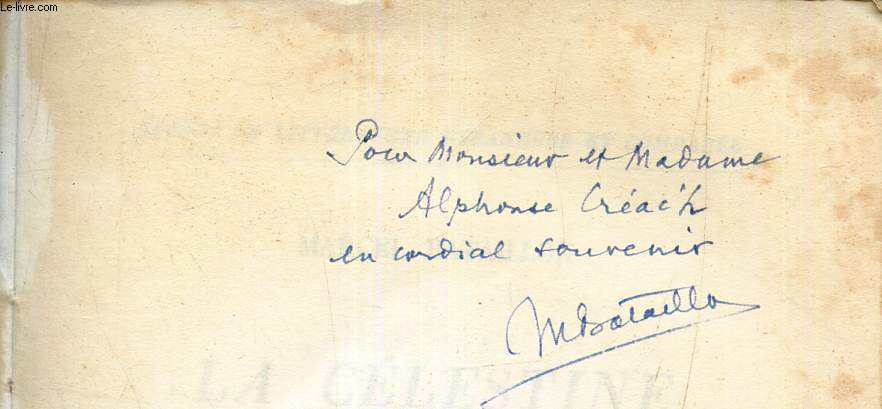 Le-livre.com
Pour Monsieur et Madame
Alphonse Créac'h
en cordial souvenir
MBataillon
LA CÉLESTINE